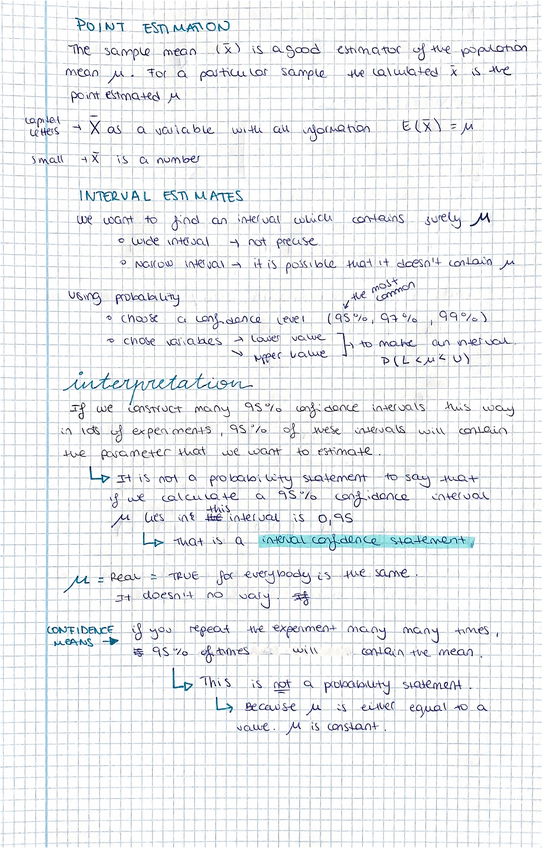 POINT ESTIMATION
The sample mean (x̄) is a good estimator of the population
mean μ. For a particular sample the calculated x̄ is the
point estimated μ
capital letters → X̄ as a variable with all information E(X̄) = μ
small → x̄ is a number
INTERVAL ESTIMATES
We want to find an interval which contains surely μ
○ wide interval → not precise
○ narrow interval → it is possible that it doesn't contain μ
the most common
Using probability
○ choose a confidence level (95%, 97%, 99%)
○ chose variables → lower value ] → to make an interval.
↘ upper value P(L < μ < U)
interpretation
If we construct many 95% confidence intervals this way
in lots of experiments, 95% of these intervals will contain
the parameter that we want to estimate.
↳ It is not a probability statement to say that
if we calculate a 95% confidence interval
μ lies in this interval is 0,95
↳ That is a interval confidence statement.
μ = Real = TRUE for everybody is the same.
It doesn't no vary.
CONFIDENCE MEANS → if you repeat the experiment many many times,
95% of times will contain the mean.
↳ This is not a probability statement.
↳ Because μ is either equal to a
value. μ is constant.